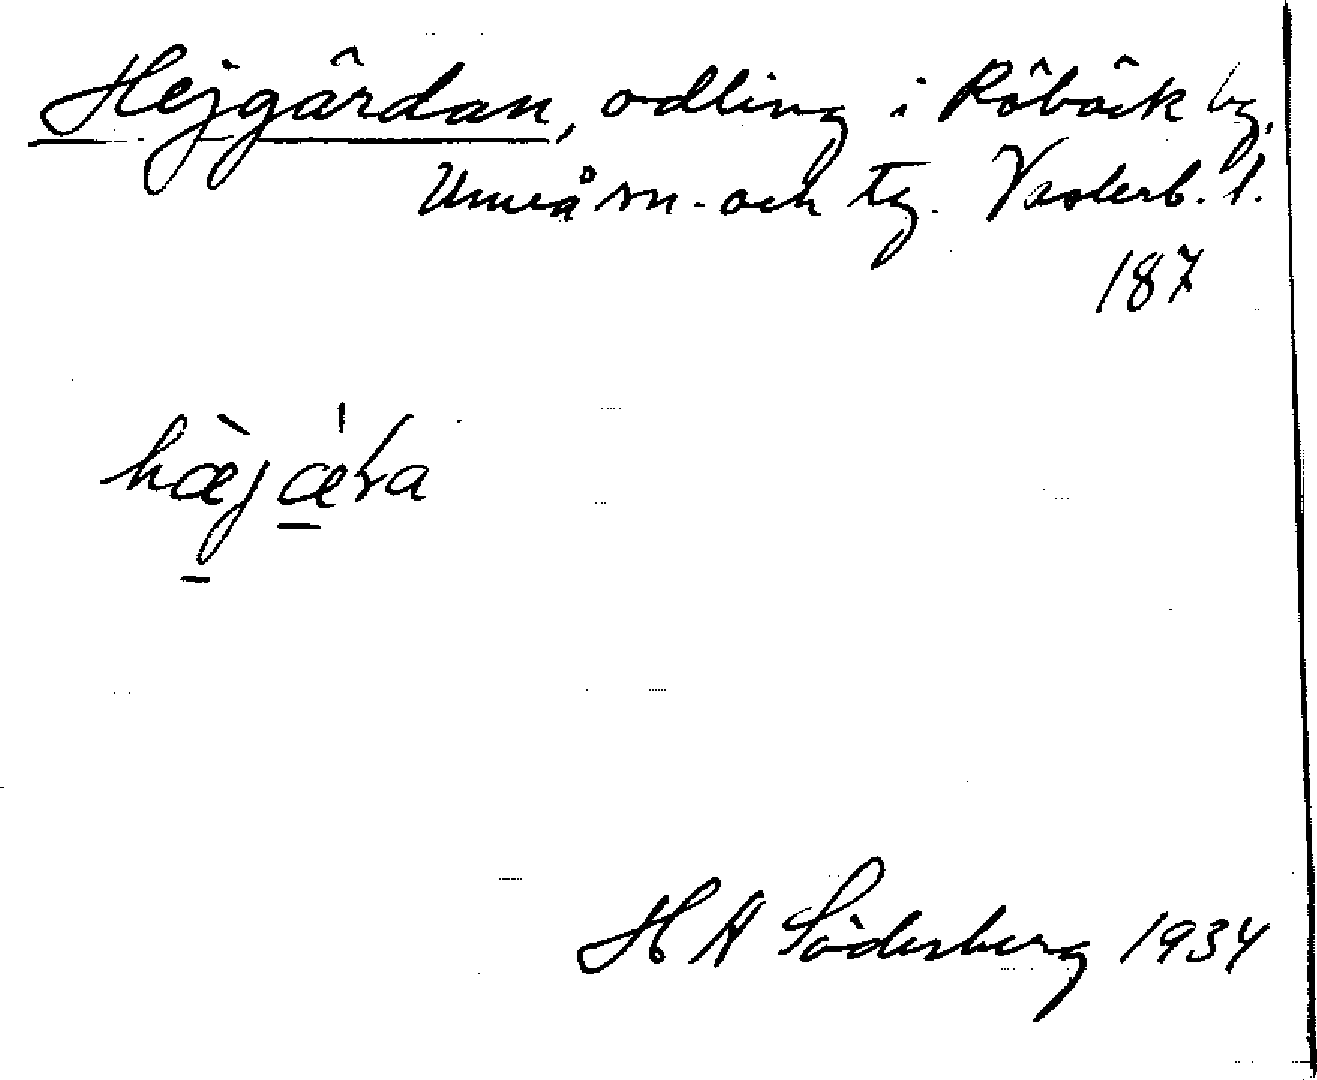 Hejgårdan, odling i Röbäck by,
Umeå sn. och tg. Västerb. l.
187
hæ̀jæ̍ra
H A Söderberg 1934